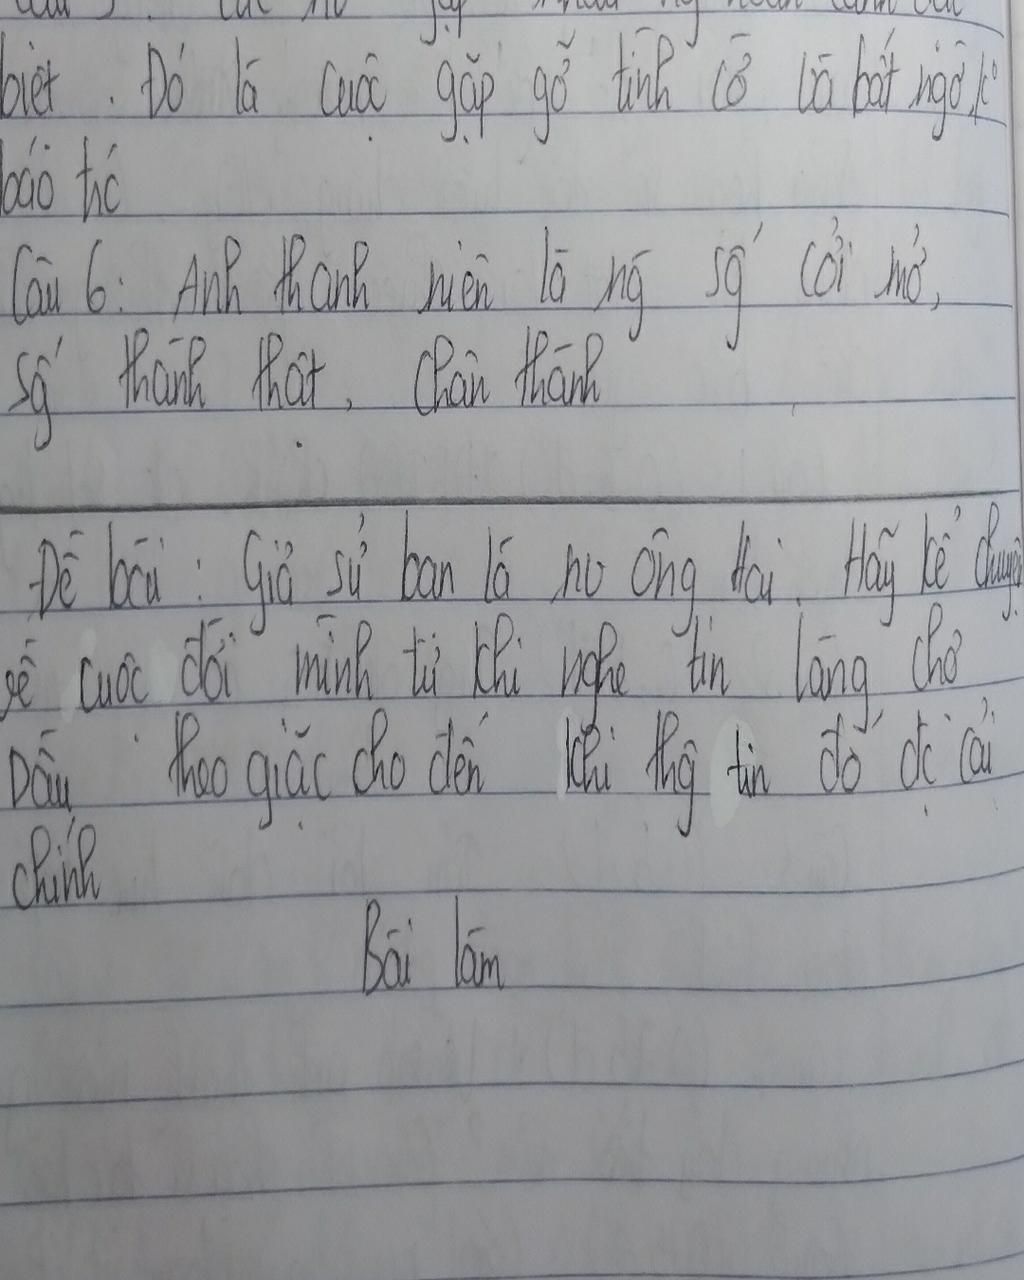 biệt. Đó là cuộc gặp gỡ tình cờ và bất ngờ, k
báo tríc
Câu 6: Anh thanh niên là ng sg cởi mở,
sg thành thật, chân thành
Đề bài: Giả sử bạn là nv ông Hai. Hãy kể chuyện
về cuộc đời mình từ khi nghe tin làng chợ
Dầu theo giặc cho đến khi thg tin đó đc cải
chính
Bài làm